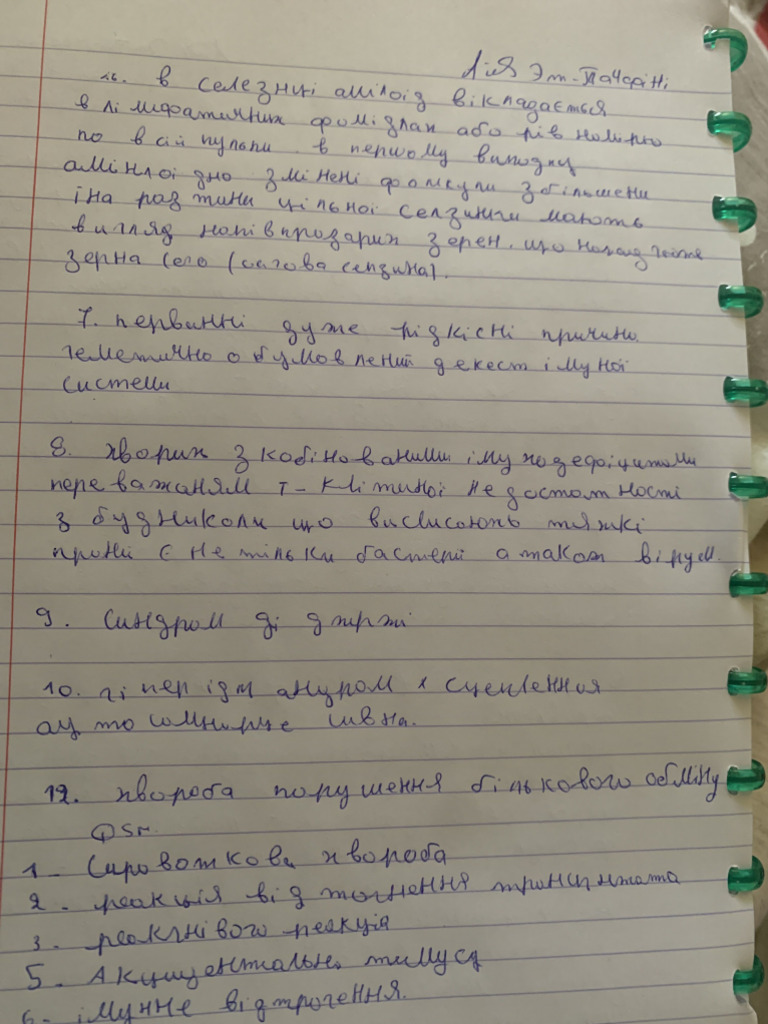 Лія Эт-Тачфіні
16. в селезнці амілоід вікладається
в лімфатичних фомідлах або рівномірно
по всій пульпи. в першому випадку
амінлоідно змінені фолкули збільшени
іна разтини цільної селзинги мають
вигляд напівпрозарих зерен. що нагад
зерна саго (сагова селзина).
7. первинні дуже рідкісні причино
генетично обумовлений дефект імуної
системи
8. хворих з кобінованими імунодефіцитами
переважаням т-клітиної недостатності
збудниколи що висисоють тяжкі
прояи є не тільки бастерії а також віруси.
9. синдром ді джржі
10. гіпер ідм синдром х сцеплення
аутосомнорце сивна.
12. хвороба порушення білкового обміну
QSN.
1 - Сироваткова хвороба
2. реакція відторгнення трансплантата
3. реагнівого реакція
5. Акцидентальна тимуса
6. імунне відтрогення.